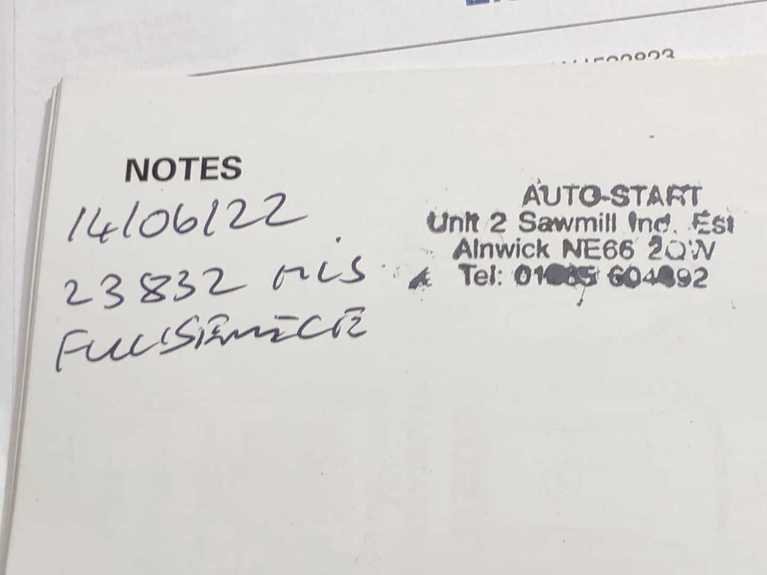 NOTES
14/06/22
23832 mls
FULL SERVICE
AUTO-START
Unit 2 Sawmill Ind. Est
Alnwick NE66 2QW
Tel: